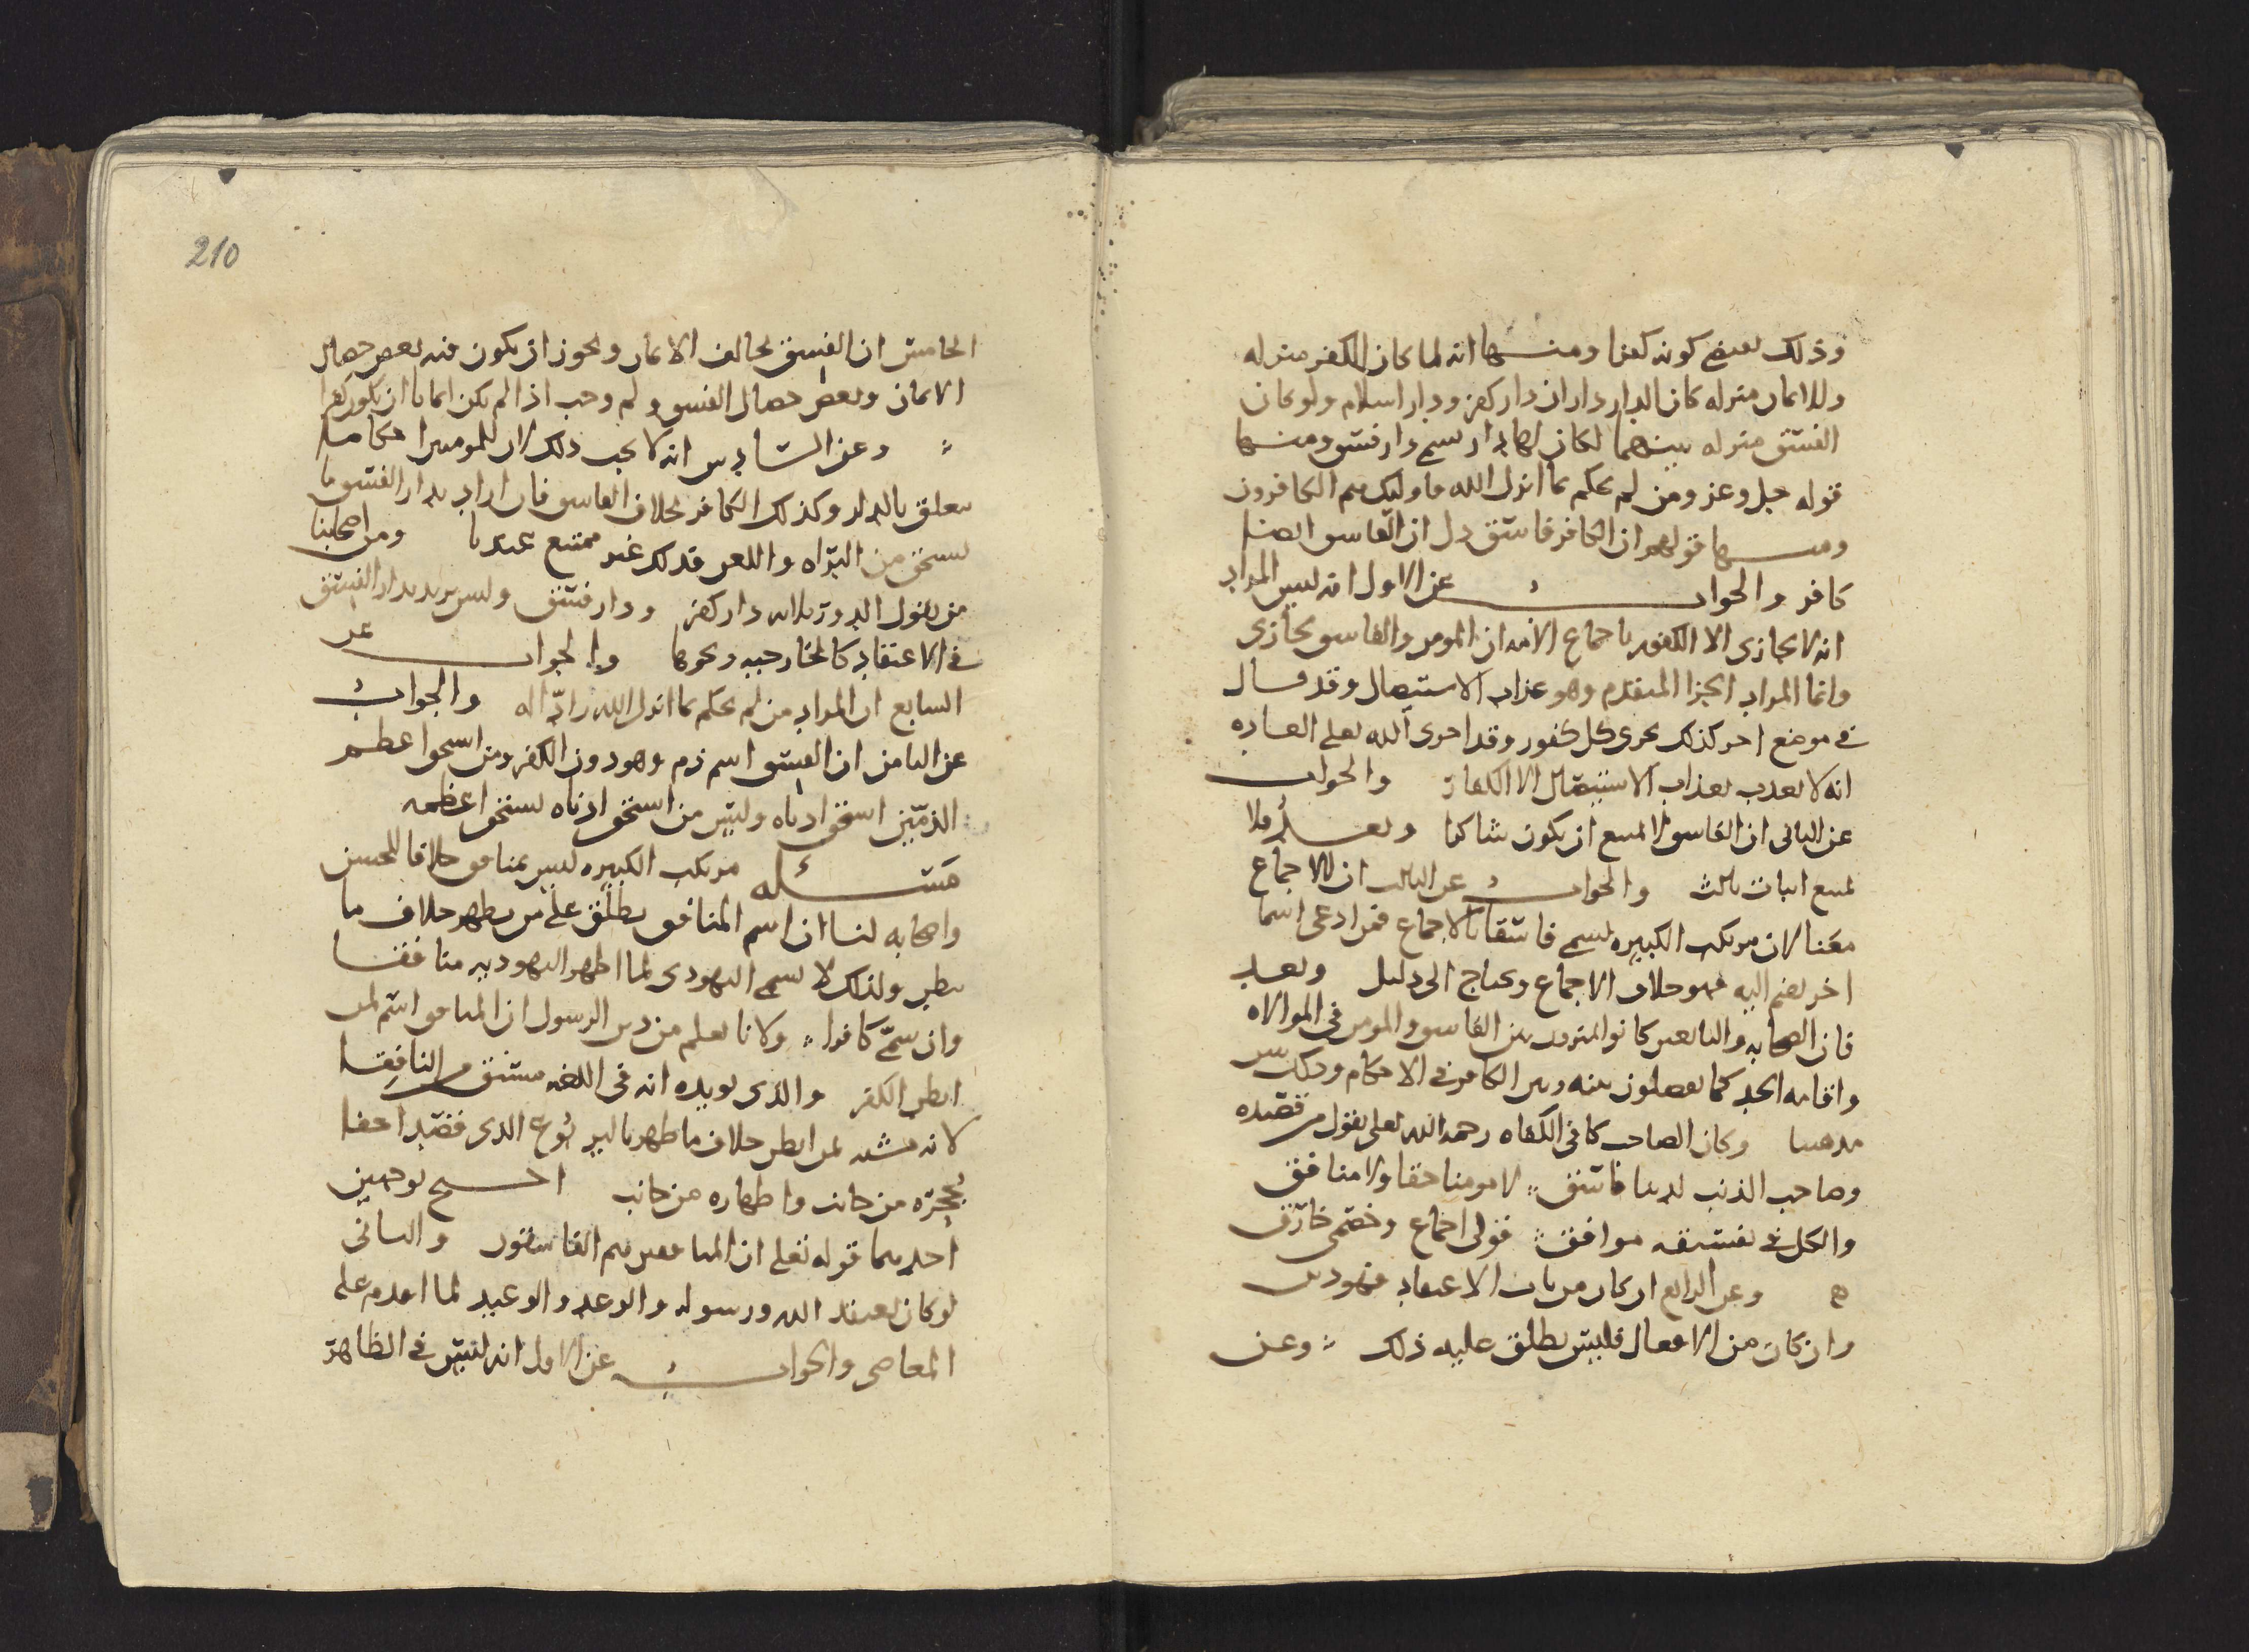 وذلك يقتضي كونه كفرا ومنها انه لما كان للكفر منزله
وللايمان منزله كان الدار داران دار كفر ودار اسلام ولو كان
الفسق منزله بينهما لكان لها دار تسمى دار فسق ومنها
قوله جل وعز ومن لم يحكم بما انزل الله فاوليك هم الكافرون
ومنها قولهم ان الكافر فاسق دل ان الفاسق ايضا
كافر والجواب عن الاول انه ليس المراد
انه لا يجازى الا الكفور باجماع الامه ان المومن والفاسق يجازى
وانما المراد الجزا المتقدم وهو عذاب الاستيصال وقد قال
في موضع اخر كذلك نجزى كل كفور وقد اجرى الله تعلى العاده
انه لا يعذب بعذاب الاستيصال الا الكفار والجواب
عن الثانى ان الفاسق لا يمتنع ان يكون شاكرا وبعد فلا
يمنع اثبات ثالث والجواب عن الثالث ان للاجماع
معنا لان مرتكب الكبيره يسمى فاسقا بالاجماع فمن ادعى اسما
اخر يضم اليه فهو خلاف الاجماع ويحتاج الى دليل وبعد
فان الصحابه والتابعين كانوا يميزون بين الفاسق والمومن في الموالاه
واقامه الحد كما يفصلون بينه وبين الكافر في الاحكام وذلك يبين
مذهبنا وكان الصاحب كافى الكفاه رحمه الله تعلى يقول من قصيده
وصاحب الذنب لدينا فاسق لا مومنا حقا ولا منافق
والكل في تفسيقه موافق قولى اجماع وخصمى خارق
وعن الرابع ان كان من باب الاعتقاد فهو دين
وان كان من الافعال فليس يطلق عليه ذلك وعن
210
الخامس ان الفسق يخالف الايمان ويجوز ان يكون فيه بعض خصال
الايمان وبعض خصال الفسق ولم وجب اذا لم يكن ايمانا ان يكون كفرا
وعن السادس انه لا يجب ذلك لان للمومن احكاما
تتعلق بالدار وكذلك الكافر بخلاف الفاسق فان اراد بدار الفسق ما
يستحق من البراه واللعن فذلك غير ممتنع عندنا ومن اصحابنا
من يقول الدور ثلاثه دار كفر ودار فسق وليس يريد بدار الفسق
في الاعتقاد كالخارجيه ونحوها والجواب عن
السابع ان المراد من لم يحكم بما انزل الله رادا له والجواب
عن الثامن ان الفسق اسم ذم وهو دون الكفر ومن استحق اعظم
الذمين استحق ادناه وليس من استحق ادناه يستحق اعظمه
مسئله مرتكب الكبيره ليس بمنافق خلافا للحسن
واصحابه لنا ان اسم المنافق يطلق على من يظهر خلاف ما
يبطن ولذلك لا يسمى اليهودى لما اظهر اليهوديه منافقا
وان سمى كافرا ولانا نعلم من دين الرسول ان المنافق اسم لمن
ابطن الكفر والذى يويده انه في اللغه مشتق من النافقا
لانه مشبه لمن ابطن خلاف ما ظهر باليربوع الذى قصد اخفا
بجحره من جانب واظهاره من جانب احتج بوجهين
احدهما قوله تعلى ان المنافقين هم الفاسقون والثانى
لو كان يعتقد الله ورسوله والوعد والوعيد لما اقدم على
المعاصى والجواب عن الاول انه ليس في الظاهر